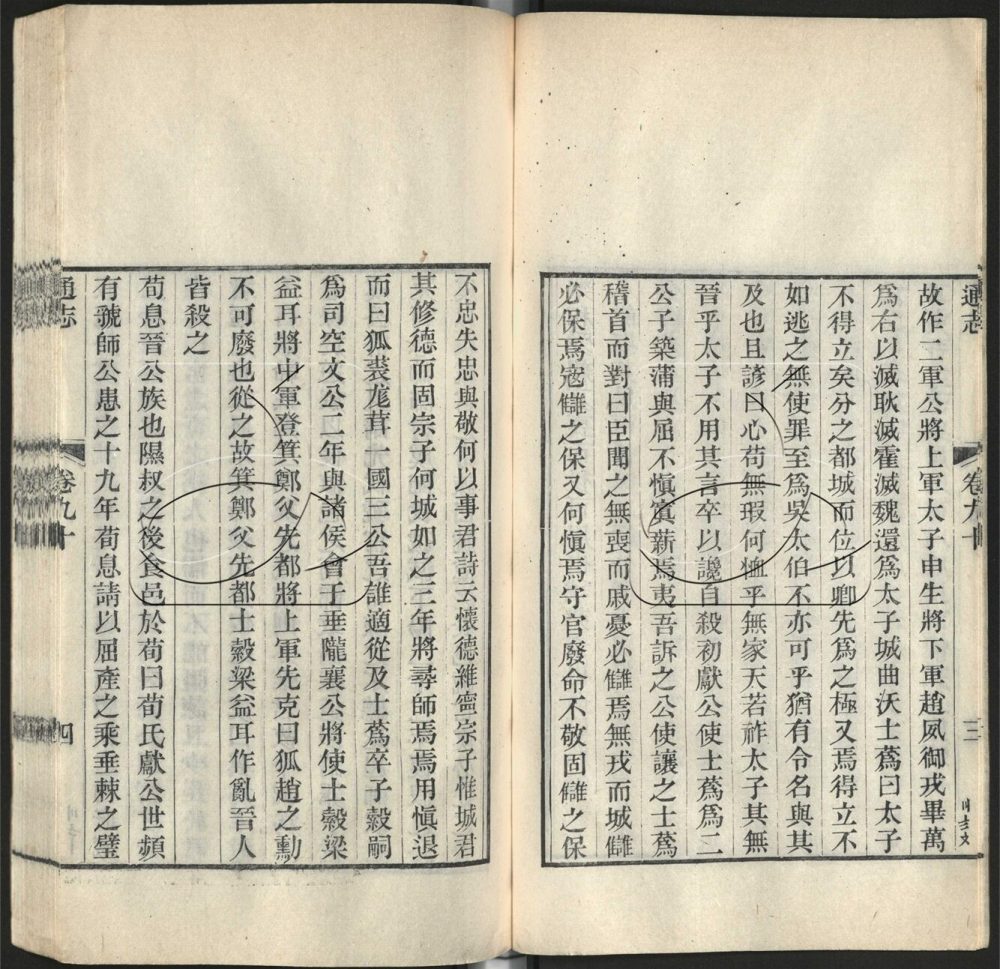 通志
卷九十
三
故作二軍公將上軍太子申生將下軍趙夙御戎畢萬
爲右以滅耿滅霍滅魏還爲太子城曲沃士蒍曰太子
不得立矣分之都城而位以卿先爲之極又焉得立不
如逃之無使罪至爲吳太伯不亦可乎猶有令名與其
及也且諺曰心苟無瑕何恤乎無家天若祚太子其無
晉乎太子不用其言卒以讒自殺初獻公使士蒍爲二
公子築蒲與屈不慎寘薪焉夷吾訴之公使讓之士蒍
稽首而對曰臣聞之無喪而慼憂必讎焉無戎而城讎
必保焉寇讎之保又何慎焉守官廢命不敬固讎之保
不忠失忠與敬何以事君詩云懷德維寧宗子惟城君
其修德而固宗子何城如之三年將尋師焉焉用慎退
而曰狐裘尨茸一國三公吾誰適從及士蒍卒子縠嗣
爲司空文公二年與諸侯會于垂隴襄公將使士縠梁
益耳將中軍登箕鄭父先都將上軍先克曰狐趙之勳
不可廢也從之故箕鄭父先都士縠梁益耳作亂晉人
皆殺之
荀息晉公族也隰叔之後食邑於荀曰荀氏獻公世頻
有虢師公患之十九年荀息請以屈產之乘垂棘之璧
通志
卷九十
四